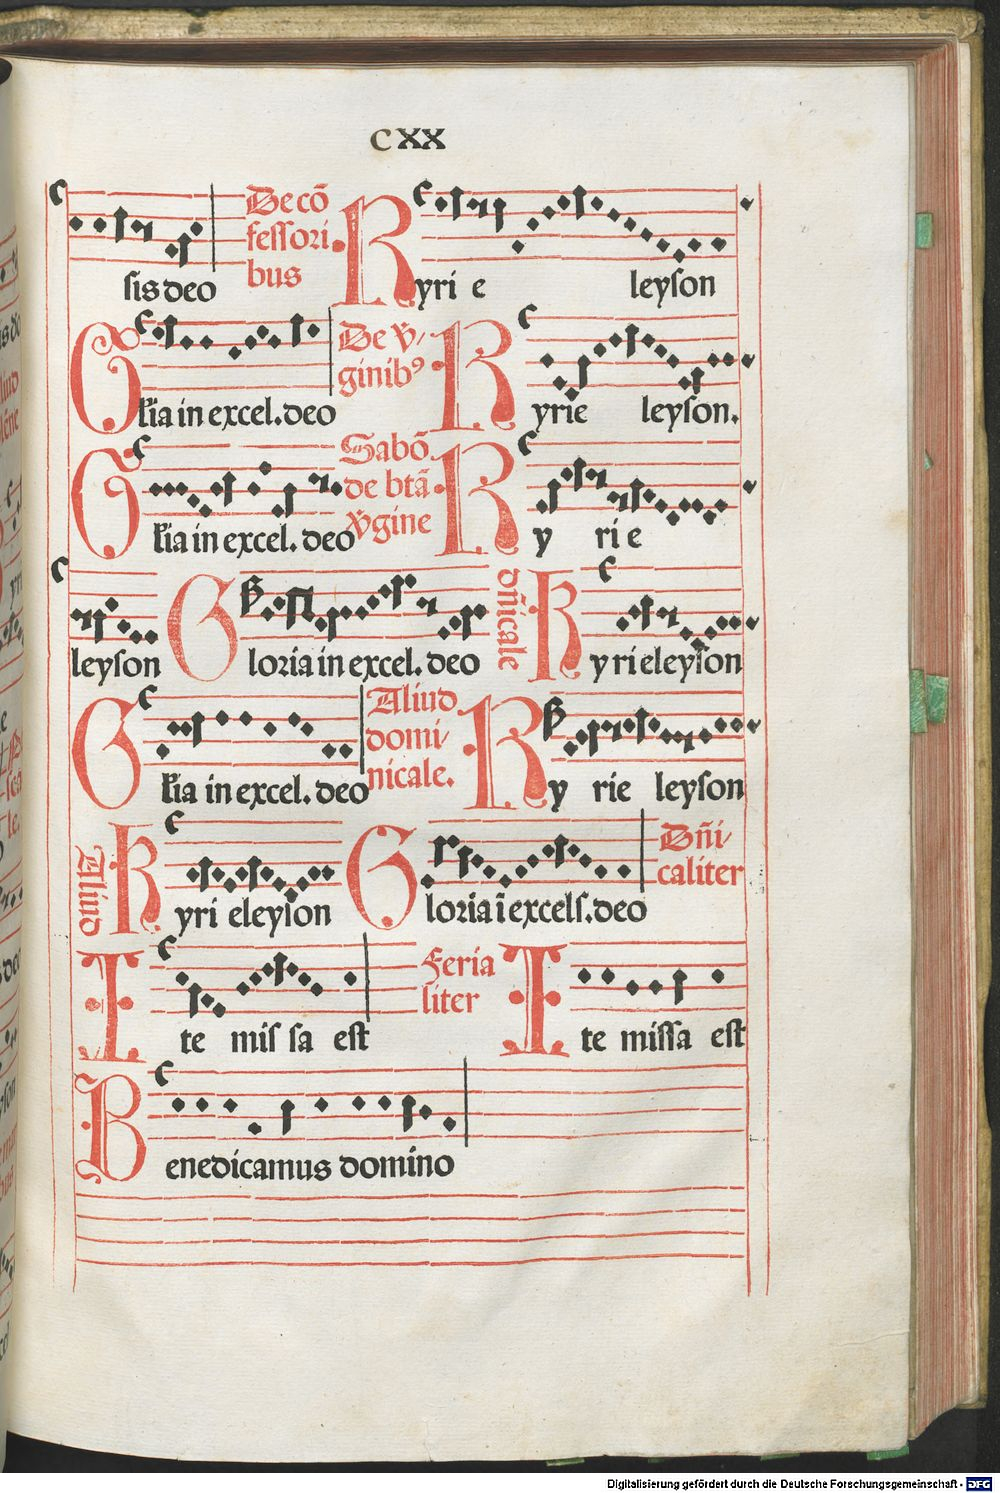 CXX
De cõ
fessori
bus
sis deo
Kyri e leyson
De v̾/
ginibꝰ
Gl'ia in excel. deo
Kyrie leyson.
Sabõ
de btã
v̾gine
Gl'ia in excel. deo
Ky ri e
leyson
Gloria in excel. deo
dñicale
Kyri eleyson
Gl'ia in excel. deo
Aliud
domi/
nicale.
Ky rie leyson
Aliud
Kyri eleyson
Gloria ĩ excels. deo
Dñi/
caliter
Ite mis sa est
Feria
liter
Ite missa est
Benedicamus domino
Digitalisierung gefördert durch die Deutsche Forschungsgemeinschaft - DFG